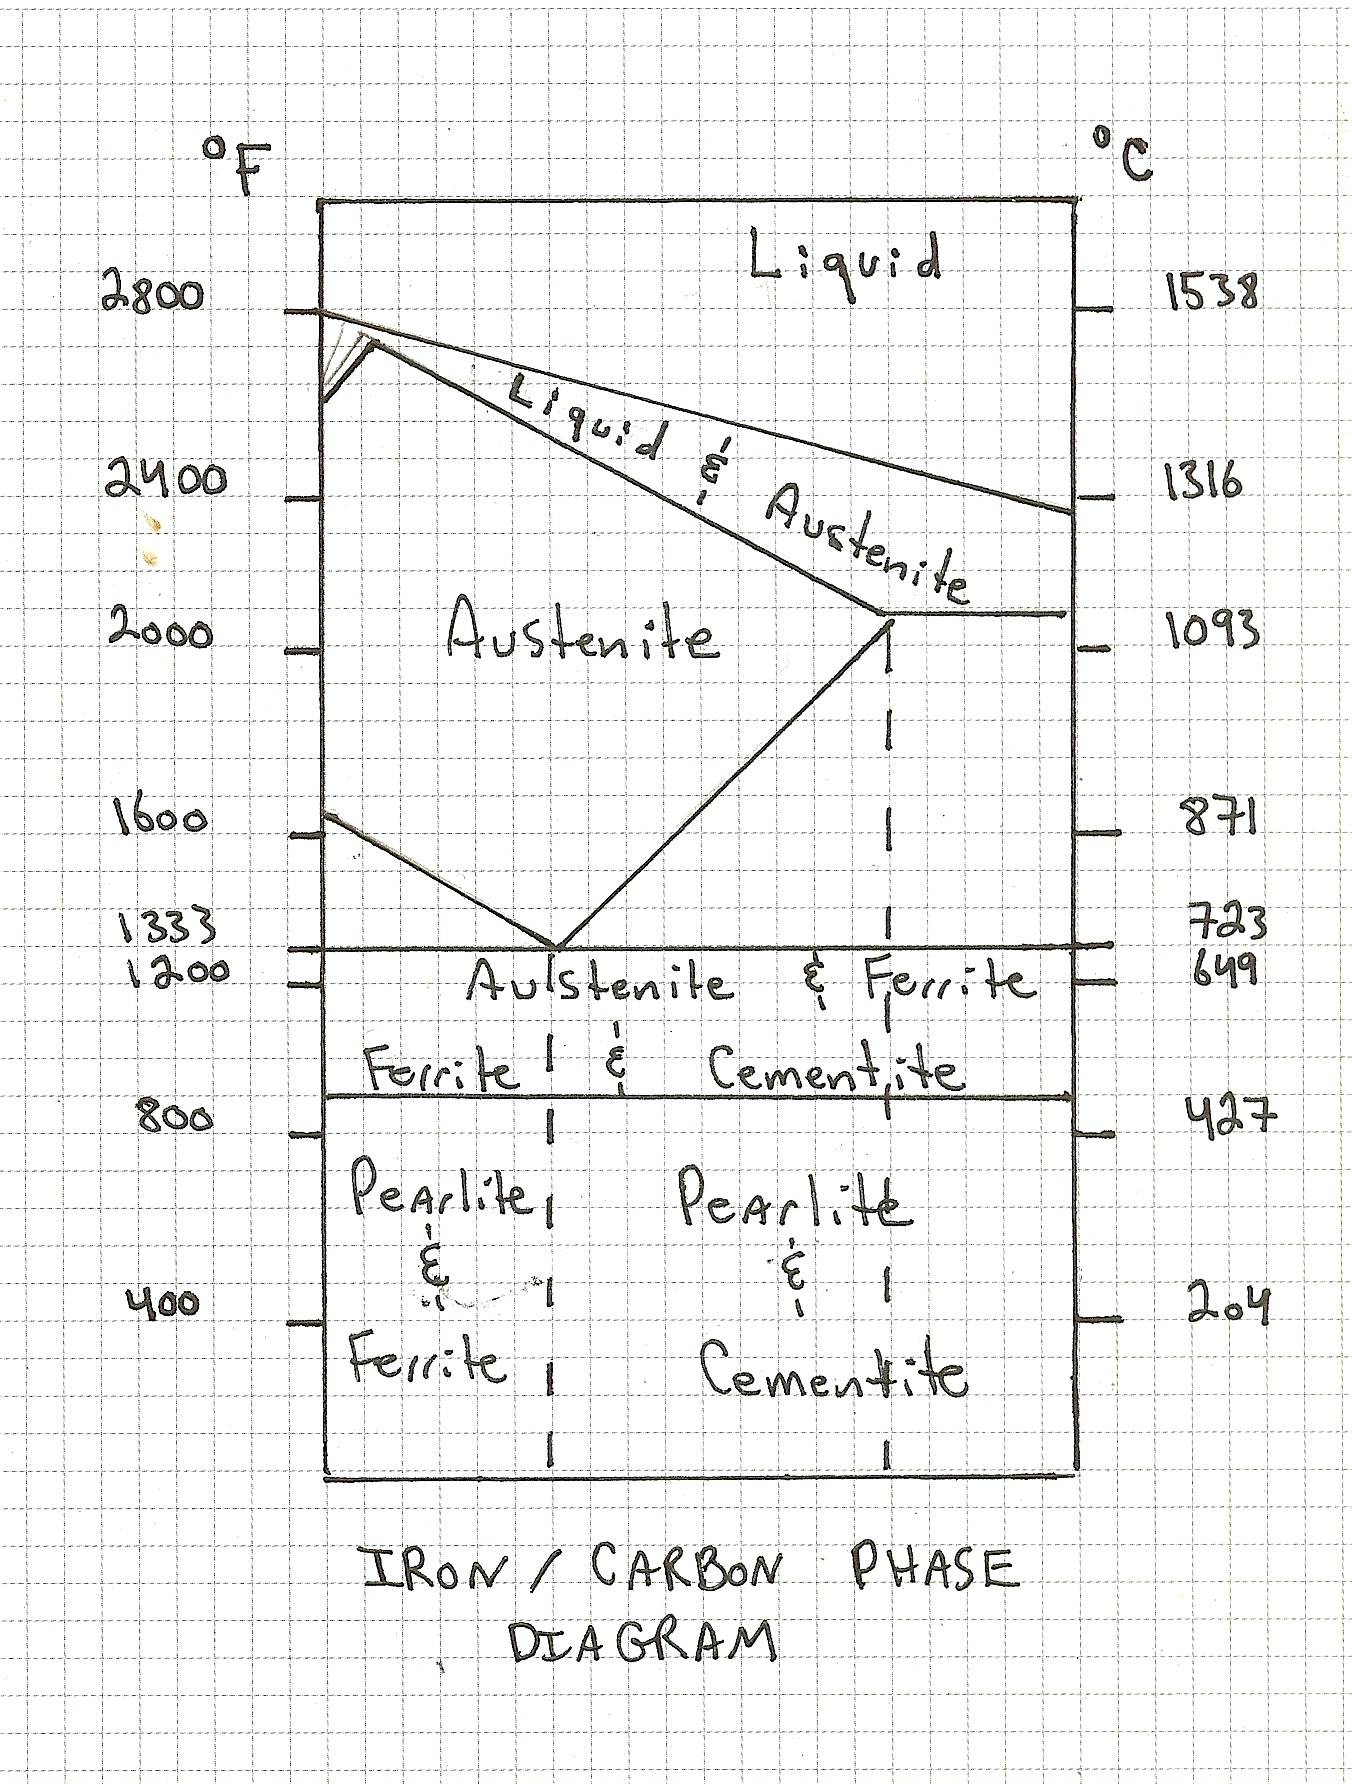 °F
°C
Liquid
2800
1538
Liquid & Austenite
2400
1316
Austenite
2000
1093
1600
871
1333
723
1200
649
Austenite & Ferrite
Ferrite & Cementite
800
427
Pearlite
&
Ferrite
Pearlite
&
Cementite
400
204
IRON / CARBON PHASE
DIAGRAM